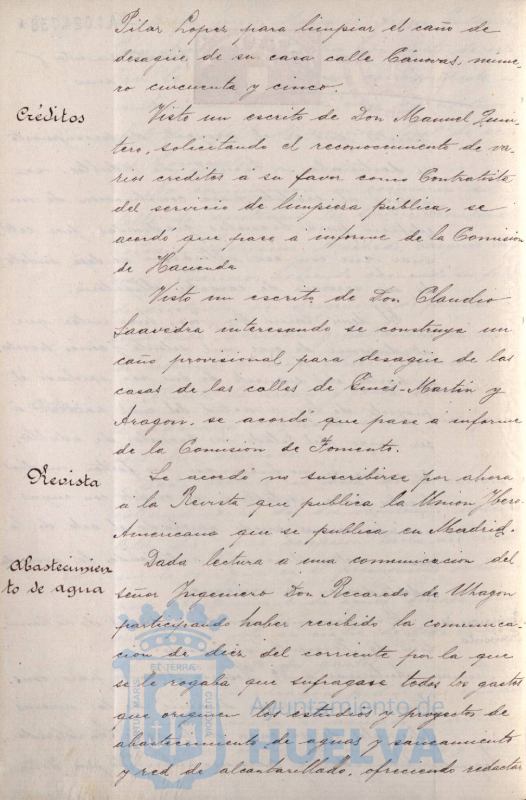 Pilar Lopez para limpiar el caño de
desagüe de su casa calle Cánovas, núme-
ro cincuenta y cinco.
Créditos
Visto un escrito de Don Manuel Quin-
tero, solicitando el reconocimiento de va-
rios créditos á su favor como Contratista
del servicio de limpieza pública, se
acordó que pase á informe de la Comisión
de Hacienda
Visto un escrito de Don Claudio
Saavedra interesando se construya un
caño provisional para desagüe de las
casas de las calles de Ginés-Martin y
Aragon, se acordó que pase á informe
de la Comision de Fomento.
Revista
Se acordó no suscribirse por ahora
á la Revista que publica la Union Ibero
Americana que se publica en Madrid.
Abastecimien
to de agua
Dada lectura á una comunicacion del
señor Ingeniero Don Recaredo de Uhagon
participando haber recibido la comunica-
cion de diez del corriente por la que
se le rogaba que sufragase todos los gastos
que originen los estudios y proyectos de
abastecimiento de aguas y saneamiento
y red de alcantarillado, ofreciendo redactar
MARIS
ET TERRÆ
CUSTODIA
Ayuntamiento de
HUELVA